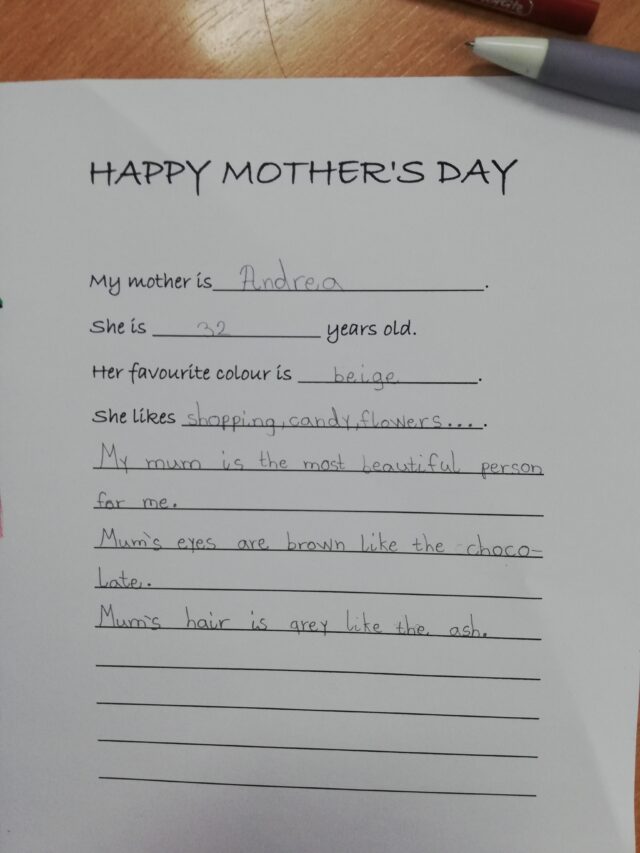 HAPPY MOTHER'S DAY
My mother is Andrea.
She is 32 years old.
Her favourite colour is beige.
She likes shopping, candy, flowers....
My mum is the most beautiful person
for me.
Mum's eyes are brown like the choco-
late.
Mum's hair is grey like the ash.